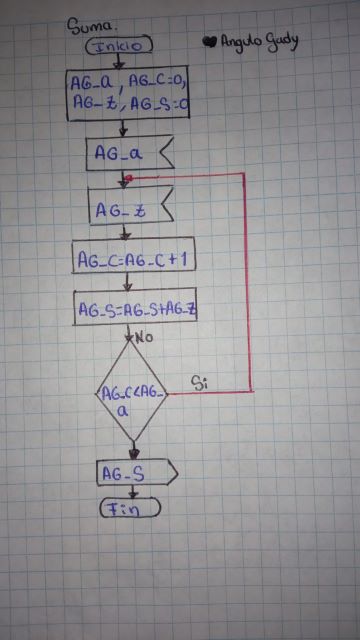 Suma.
Inicio
Angulo Gady
AG_a, AG_C=0,
AG_Z, AG_S=0
AG_a
AG_Z
AG_C=AG_C+1
AG_S=AG_S+AG_Z
No
AG_C<AG_
a
Si
AG_S
Fin